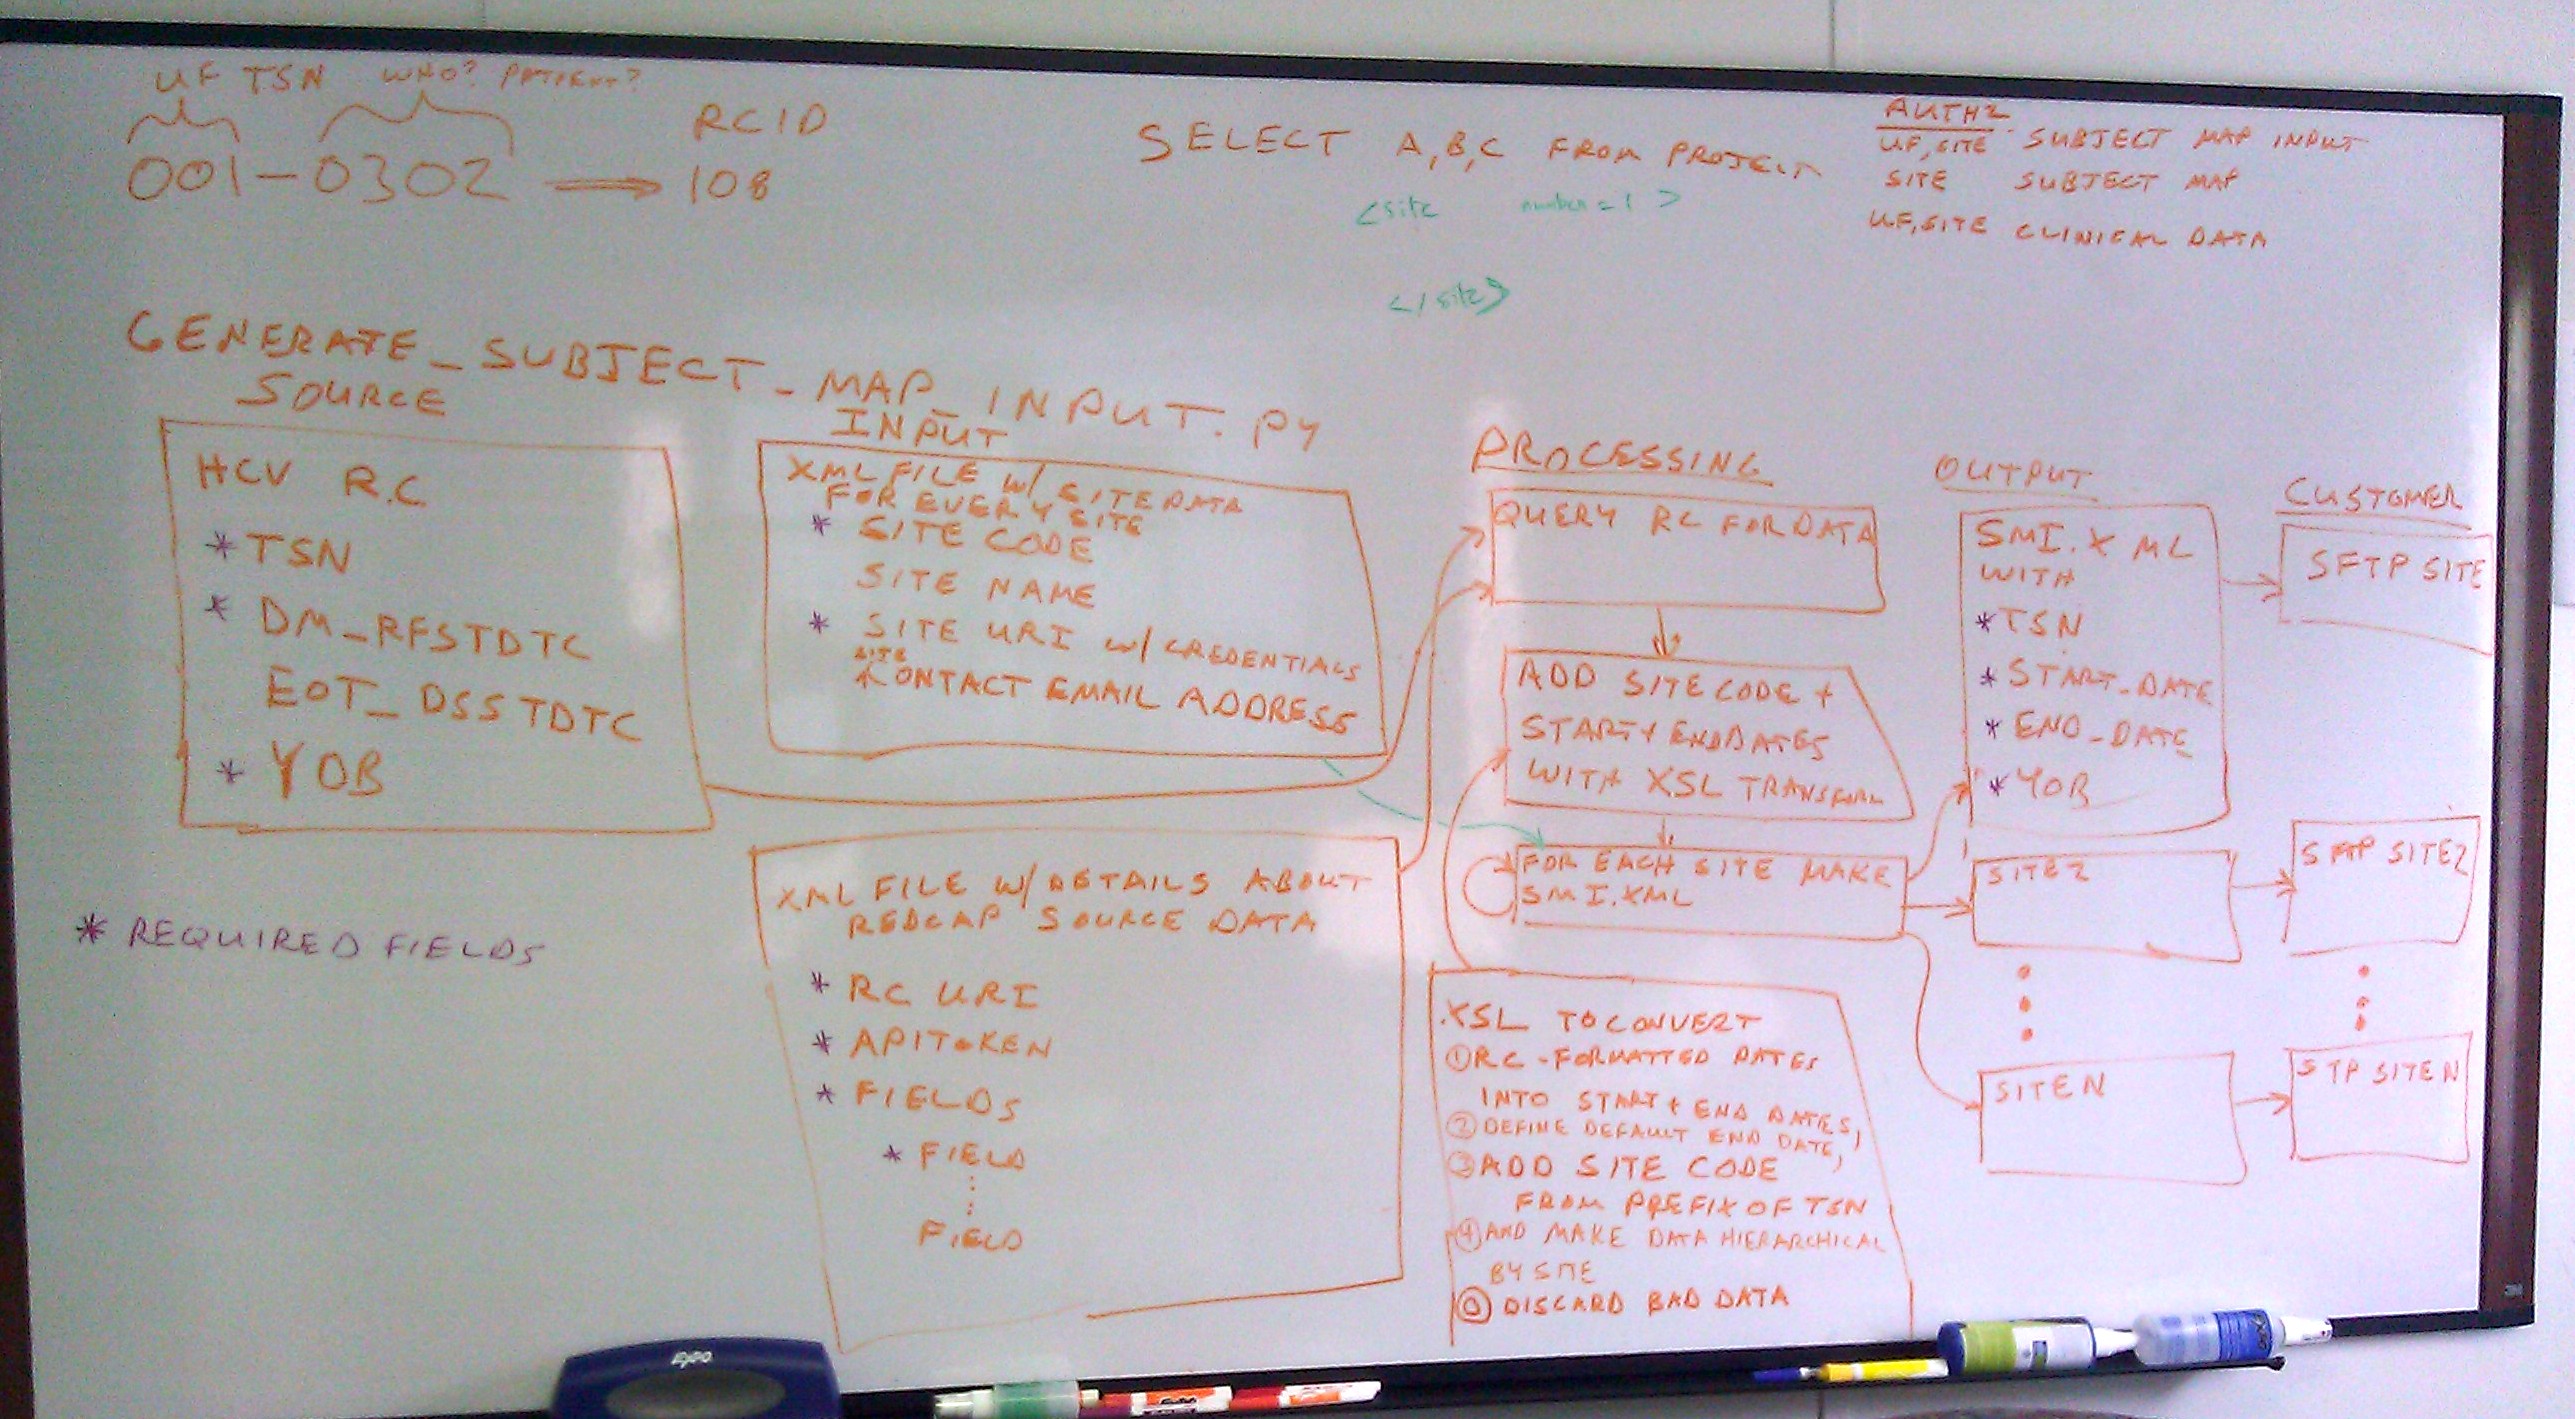 UF TSN WHO? PATIENT?
001-0302 → 108
RCID
SELECT A,B,C FROM PROJECT
<site number=1>
</site>
AUTHZ
UF,SITE SUBJECT MAP INPUT
SITE SUBJECT MAP
UF,SITE CLINICAL DATA
GENERATE_SUBJECT_MAP_INPUT.PY
SOURCE
HCV R.C
* TSN
* DM_RFSTDTC
EOT_DSSTDTC
* YOB
* REQUIRED FIELDS
INPUT
XML FILE W/ SITE DATA
FOR EVERY SITE
* SITE CODE
SITE NAME
* SITE URI W/ CREDENTIALS
SITE
CONTACT EMAIL ADDRESS
XML FILE W/ DETAILS ABOUT
REDCAP SOURCE DATA
* RC URI
* API TOKEN
* FIELDS
* FIELD
FIELD
PROCESSING
QUERY RC FOR DATA
ADD SITE CODE +
START + END DATES
WITH XSL TRANSFORM
FOR EACH SITE MAKE
SMI.XML
XSL TO CONVERT
① RC-FORMATTED DATES
INTO START + END DATES,
② DEFINE DEFAULT END DATE,
③ ADD SITE CODE,
FROM PREFIX OF TSN
④ AND MAKE DATA HIERARCHICAL
BY SITE
⓪ DISCARD BAD DATA
OUTPUT
SMI.XML
WITH
* TSN
* START_DATE
* END_DATE
* YOB
SITE2
SITE N
CUSTOMER
SFTP SITE
SFTP SITE2
STP SITE N
EXPO